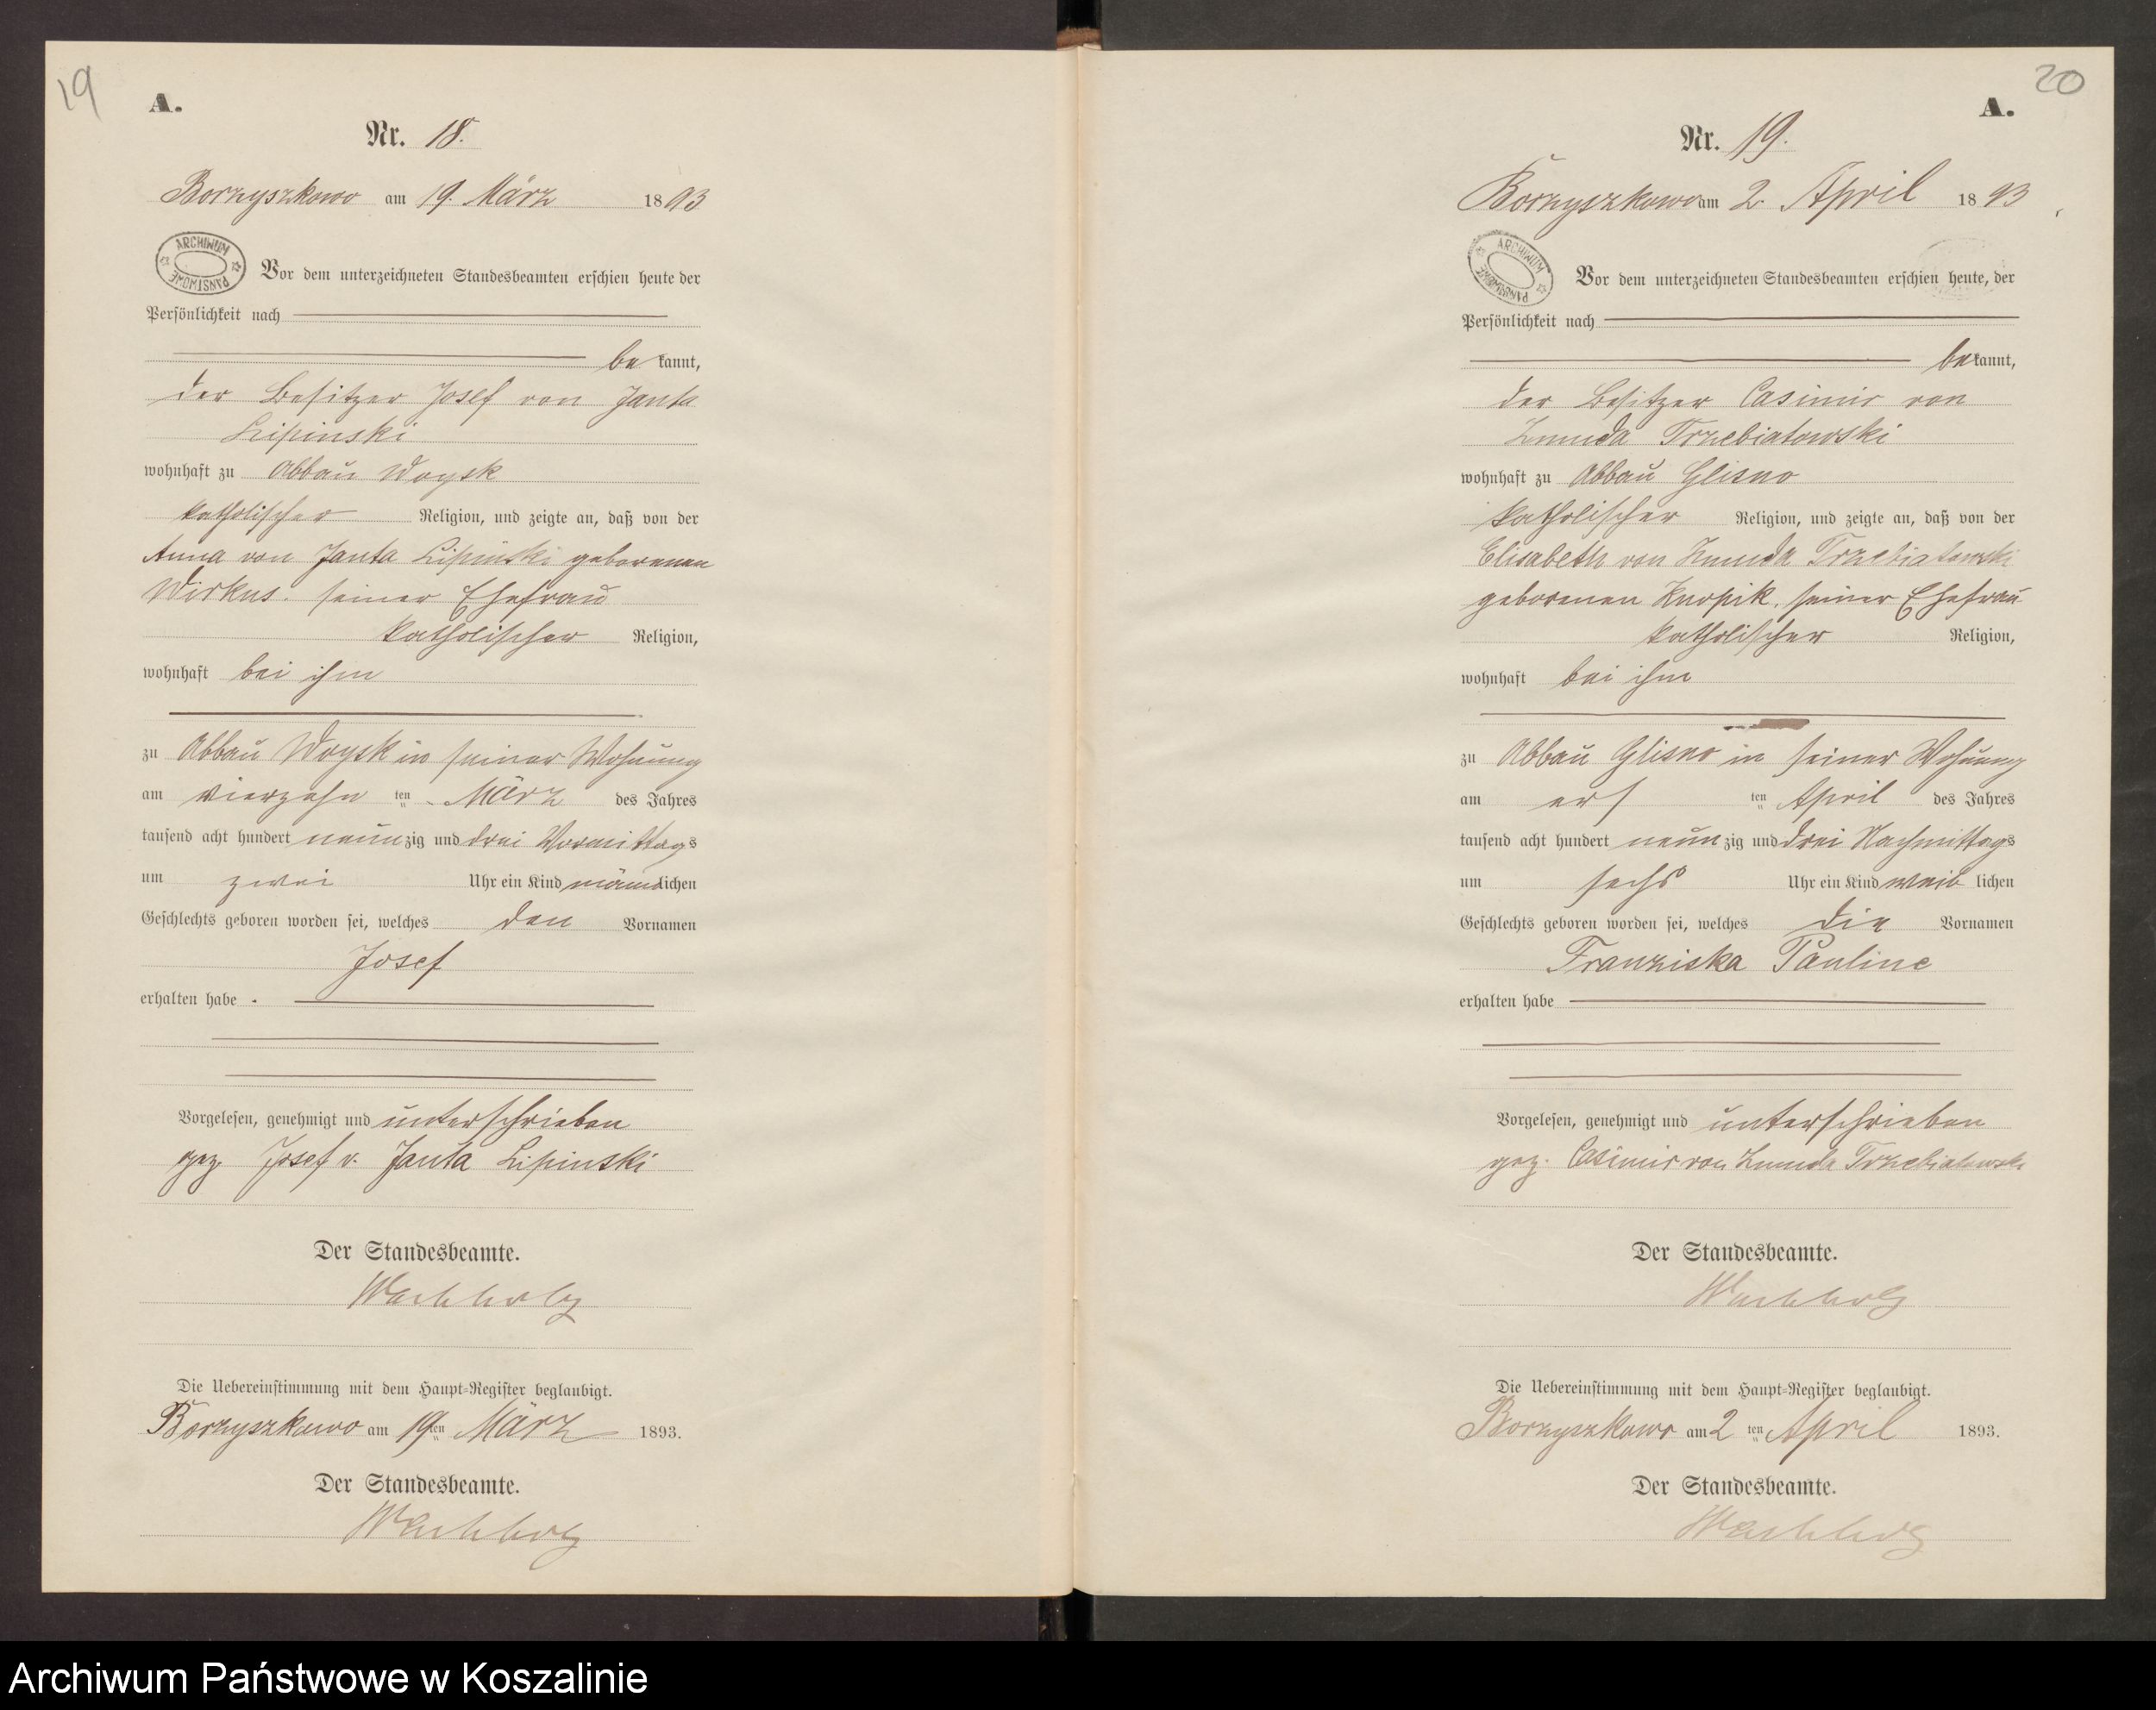 19
A.
Nr. 18.
Borzyszkowo am 19. März 1893
ARCHIWUM PAŃSTWOWE
Vor dem unterzeichneten Standesbeamten erschien heute der
Persönlichkeit nach
bekannt,
der Besitzer Josef von Janta
Lipinski
wohnhaft zu Abbau Woysk
katholischer Religion, und zeigte an, daß von der
Anna von Janta Lipinski geborenen
Wirkus. seiner Ehefrau
katholischer Religion,
wohnhaft bei ihm
zu Abbau Woysk in seiner Wohnung
am vierzehn ten März des Jahres
tausend acht hundert neunzig und drei Vormittags
um zwei Uhr ein Kind männlichen
Geschlechts geboren worden sei, welches den Vornamen
Josef
erhalten habe.
Vorgelesen, genehmigt und unterschrieben
gez. Josef v. Janta Lipinski
Der Standesbeamte.
Wachholz
Die Uebereinstimmung mit dem Haupt-Register beglaubigt.
Borzyszkowo am 19ten März 1893.
Der Standesbeamte.
Wachholz
20
A.
Nr. 19.
Borzyszkowo am 2. April 1893
ARCHIWUM PAŃSTWOWE
Vor dem unterzeichneten Standesbeamten erschien heute, der
Persönlichkeit nach
bekannt,
der Besitzer Casimir von
Zmuda Trzebiatowski
wohnhaft zu Abbau Glisno
katholischer Religion, und zeigte an, daß von der
Elisabeth von Zmuda Trzebiatowski
geborenen Knopik, seiner Ehefrau
katholischer Religion,
wohnhaft bei ihm
zu Abbau Glisno in seiner Wohnung
am ers ten April des Jahres
tausend acht hundert neunzig und drei Nachmittags
um sechs Uhr ein Kind weiblichen
Geschlechts geboren worden sei, welches die Vornamen
Franziska Pauline
erhalten habe
Vorgelesen, genehmigt und unterschrieben
gez. Casimir von Zmuda Trzebiatowski
Der Standesbeamte.
Wachholz
Die Uebereinstimmung mit dem Haupt-Register beglaubigt.
Borzyszkowo am 2 ten April 1893.
Der Standesbeamte.
Wachholz
Archiwum Państwowe w Koszalinie